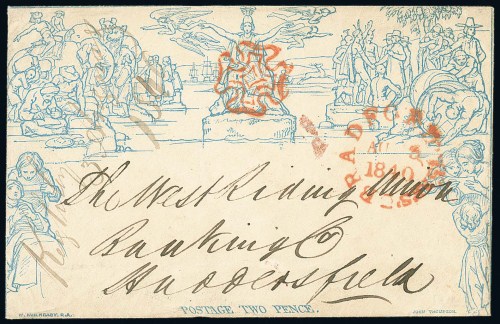 BRADFORD YORKS
AU 3
1840
The West Riding Union
Banking Co
Huddersfield
POSTAGE TWO PENCE.
W. MULREADY, R.A.
JOHN THOMPSON.